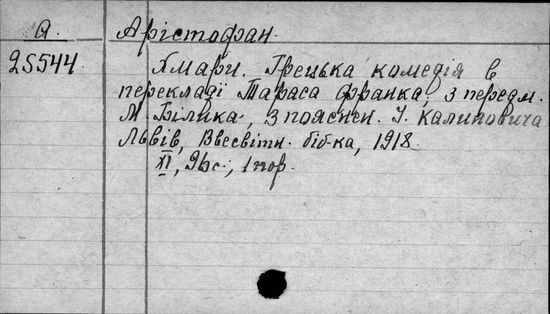 А. Арістофан.
25544 Хмари. Грецька комедія в
перекладі Тараса Франка, з передм.
М Білика, з поясн. І. Калиновича
Львів, Всесвітн. біб-ка, 1918.
XI, 96 с., 1 пор.